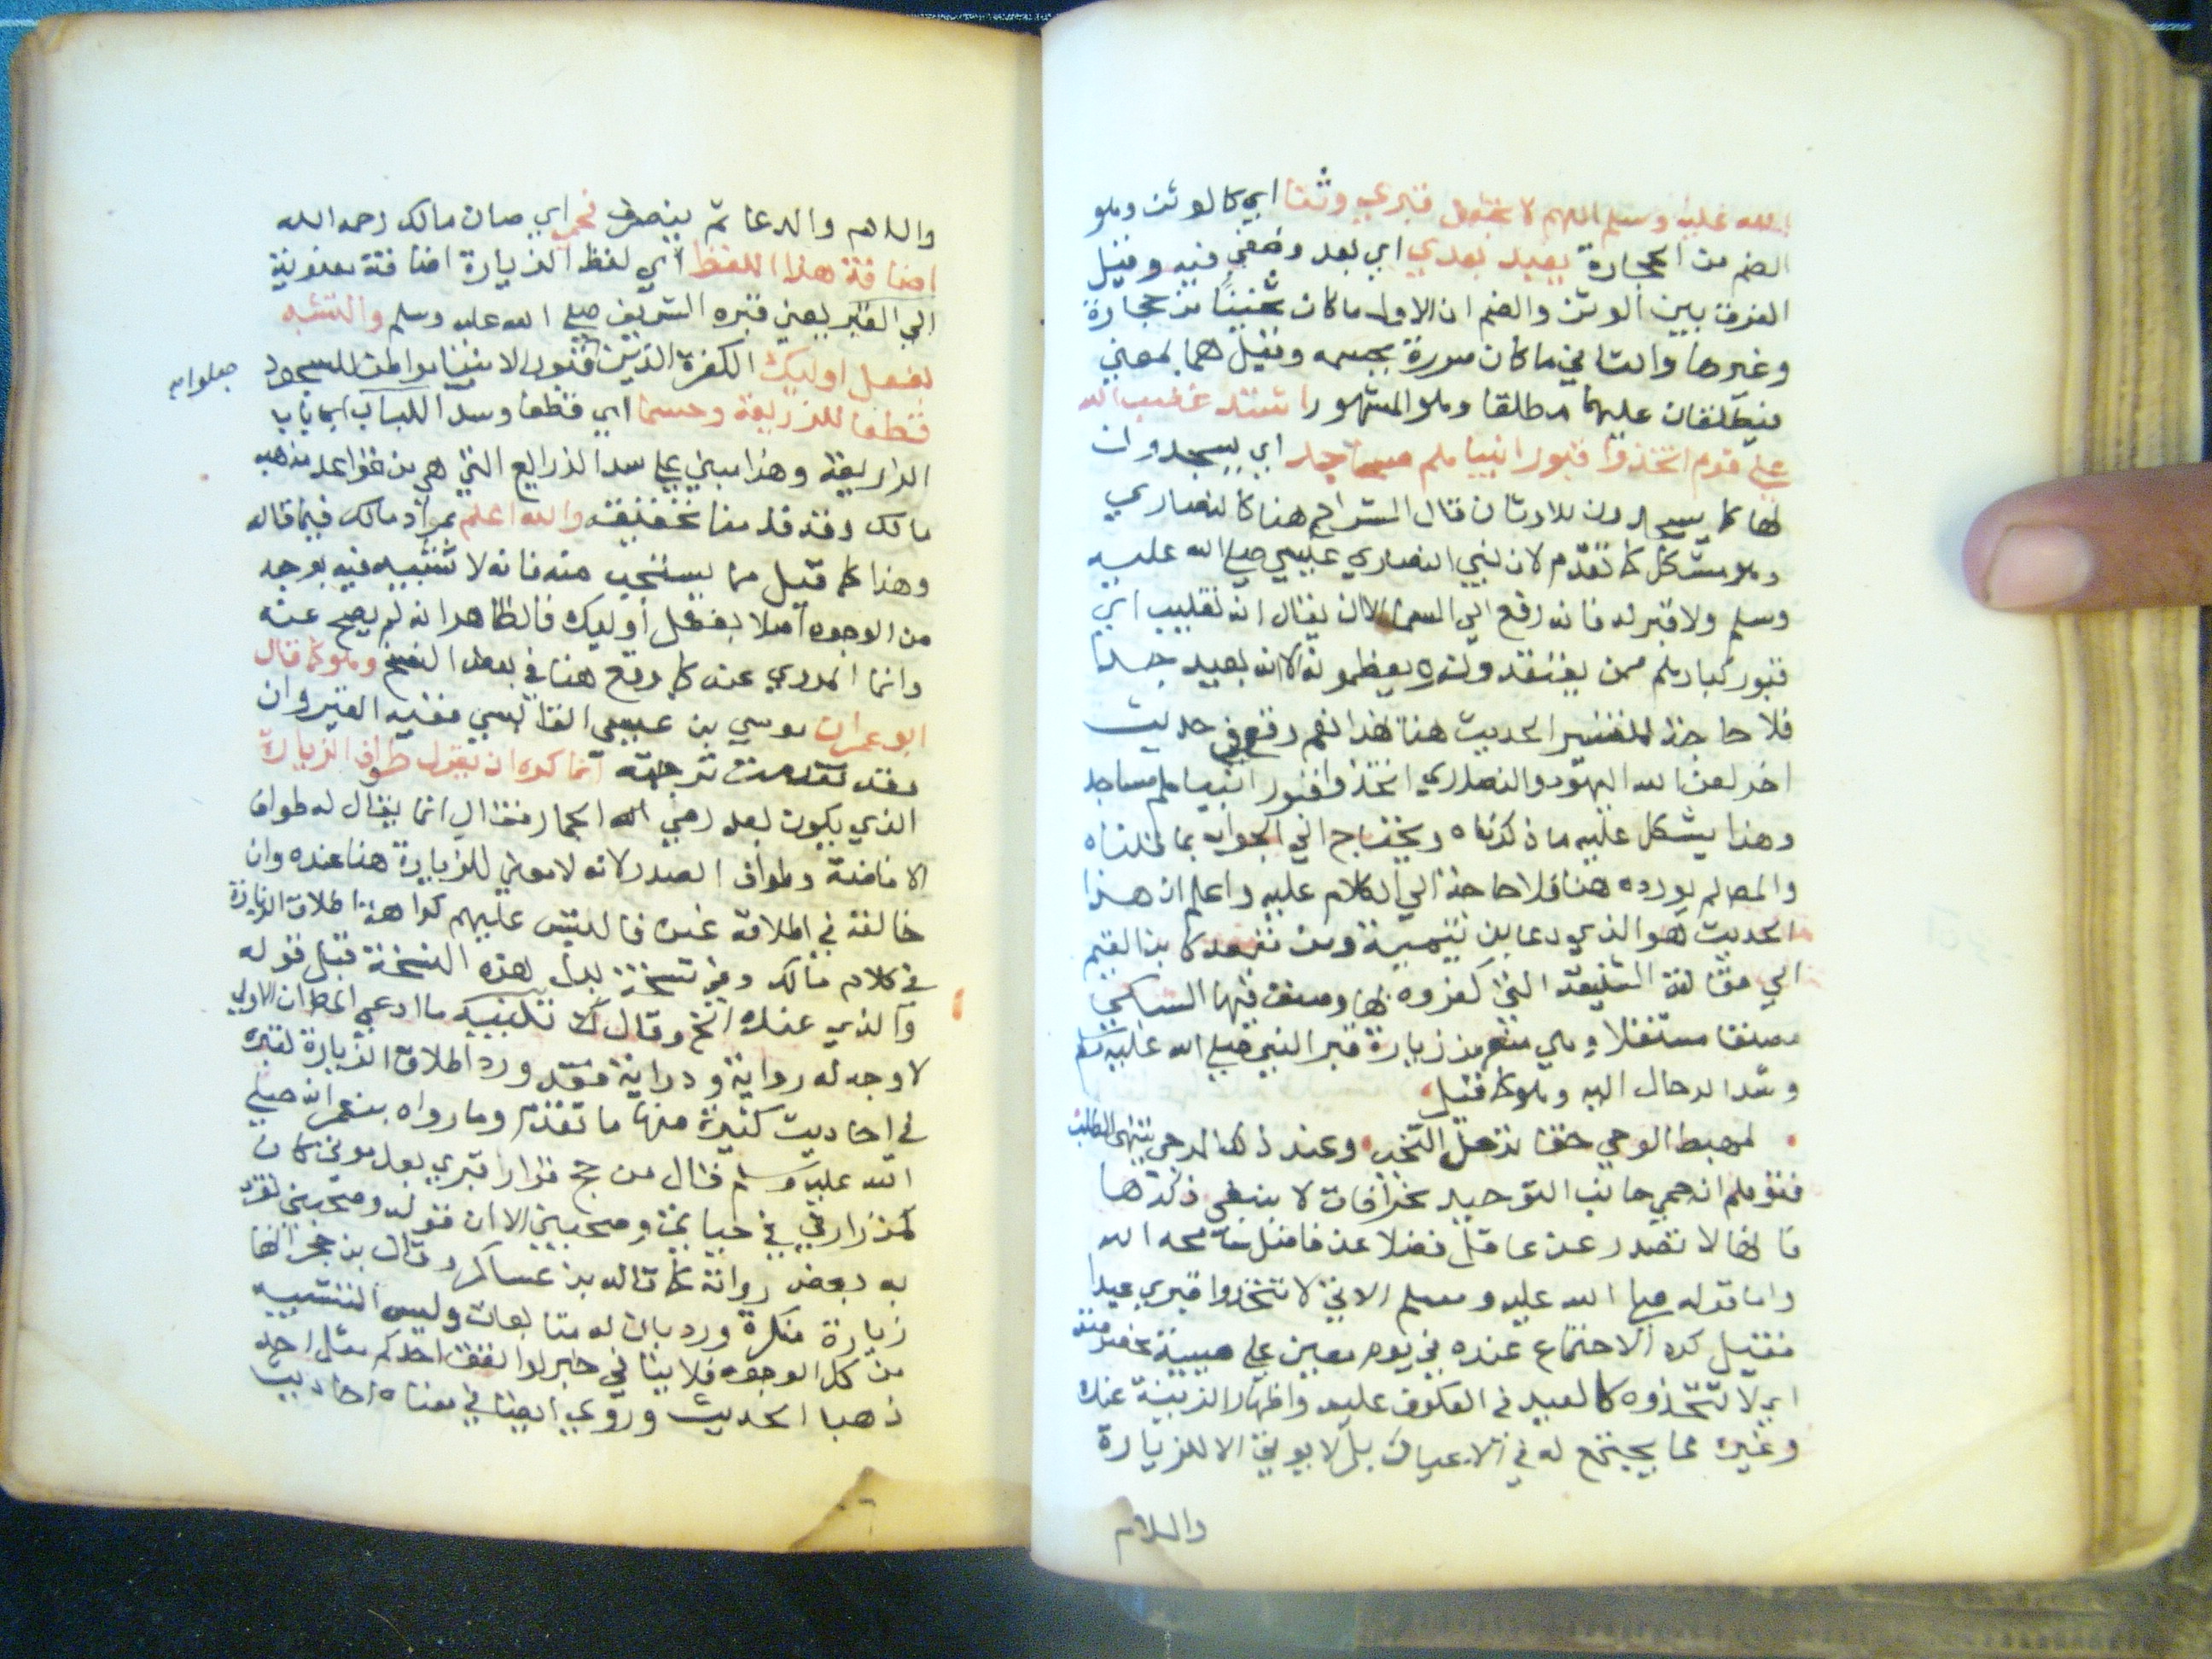 الله عليه وسلم اللهم لا تجعل قبري وثنا اي كالوثن وهو
الصنم من الحجارة يعبد بعدي اي بعد وضعي فيه وقيل
الفرق بين الوثن والصنم ان الاول ما كان نحيتا من حجارة
وغيرها والثاني ما كان صورة مجسمه وقيل هما بمعني
فيطلقان عليهما مطلقا وهو المشهور اشتد غضب الله
علي قوم اتخذوا قبور انبيايهم مساجد اي يسجدون
لها كما يسجدون للاوثان قال الشراح هنا كالنصاري
وهو مشكل كما تقدم لان نبي النصاري عيسي صلي الله عليه
وسلم ولا قبر له فانه رفع الي السما الا ان يقال انه تغليب اي
قبور كبارهم ممن يعتقدونه ويعظمونه الا انه بعيد جدا
فلا حاجة لتفسير الحديث هنا بهذا نعم وقع في حديث
اخر لعن الله اليهود والنصاري اتخذوا قبور انبيايهم مساجد
وهذا يشكل عليه ما ذكرناه ويحتاج الي الجواب بما قلناه
والمص لم يورده هنا فلا حاجة الي الكلام عليه واعلم ان هذا
الحديث هو الذي دعا بن تيمية ومن تبعه كابن القيم
الي مقالته الشنيعة التي كفروه بها وصنف فيها السبكي
مصنفا مستقلا وهي منعه من زيارة قبر النبي صلي الله عليه وسلم
وشد الرحال اليه وهو كما قيل
لمهبط الوحي حقا ترحل النجب وعند ذاك المرجي ينتهي الطلب
فتوهم انه حمي جانب التوحيد بخرافات لا ينبغي ذكرها
فانها لا تصدر عن عاقل فضلا عن فاضل سامحه الله
واما قوله صلي الله عليه وسلم الاتي لا تتخذوا قبري عيدا
فقيل كره الاجتماع عنده في يوم معين علي هيية مخصوصة
اي لا تتخذوه كالعيد في العكوف عليه واظهار الزينة عنده
وغيره مما يجتمع له في الاعياد بل لا يوتي الا للزيارة
والسلام
والسلام والدعا ثم ينصرف فحمي اي صان مالك رحمه الله
اضافة هذا اللفظ اي لفظ الزيارة اضافة معنوية
الي القبر يعني قبره الشريف صلي الله عليه وسلم والتشبه
بفعل اوليك الكفرة الذين قبور الانبيا مواطن للسجود
جعلوا
قطعا للذريعة وحسما اي قطعا وسدا للباب اي باب
الذريعة وهذا مبني علي سد الذرايع التي هي من قواعد مذهب
مالك وقد قدمنا تحقيقه والله اعلم بمراد مالك فيما قاله
وهذا كما قيل مما يستغرب منه فانه لا تشبيه فيه بوجه
من الوجوه اصلا بفعل اوليك فالظاهر انه لم يصح عنه
وانما المروي عنه كما وقع هنا في بعض النسخ وهو كما قال
ابو عمران موسي بن عيسي الفاسي فقيه القيروان
وقد تقدمت ترجمته انما كره ان يقول طواف الزيارة
الذي يكون بعد رمي الجمار فقال انما يقال له طواف
الافاضة وطواف الصدر لانه لا معني للزيارة هنا عنده وان
خالفه في اطلاقه غيره فالتبس عليهم كراهة اطلاق الزيارة
في كلام مالك وفي نسخة بدل هذه النسخة قبل قوله
والذي عنده الخ وقال تنبيه ما ادعي انه ان الاولي
لا وجه له رواية ودراية فقد ورد اطلاق الزيارة لقبره
في احاديث كثيرة منها ما تقدم وما رواه بن عمر انه صلي
الله عليه وسلم قال من حج فزار قبري بعد موتي كان
كمن زارني في حياتي وصحبني الا ان قوله وصحبني تفرد
به بعض رواته كما قاله بن عساكر وقال بن حجر انها
زيارة منكرة ورد بان له متابعات وليس التشبيه
من كل الوجوه فلا ينافي خبر لو انفق احدكم مثل احد
ذهبا الحديث وروي ايضا في معناه احاديث